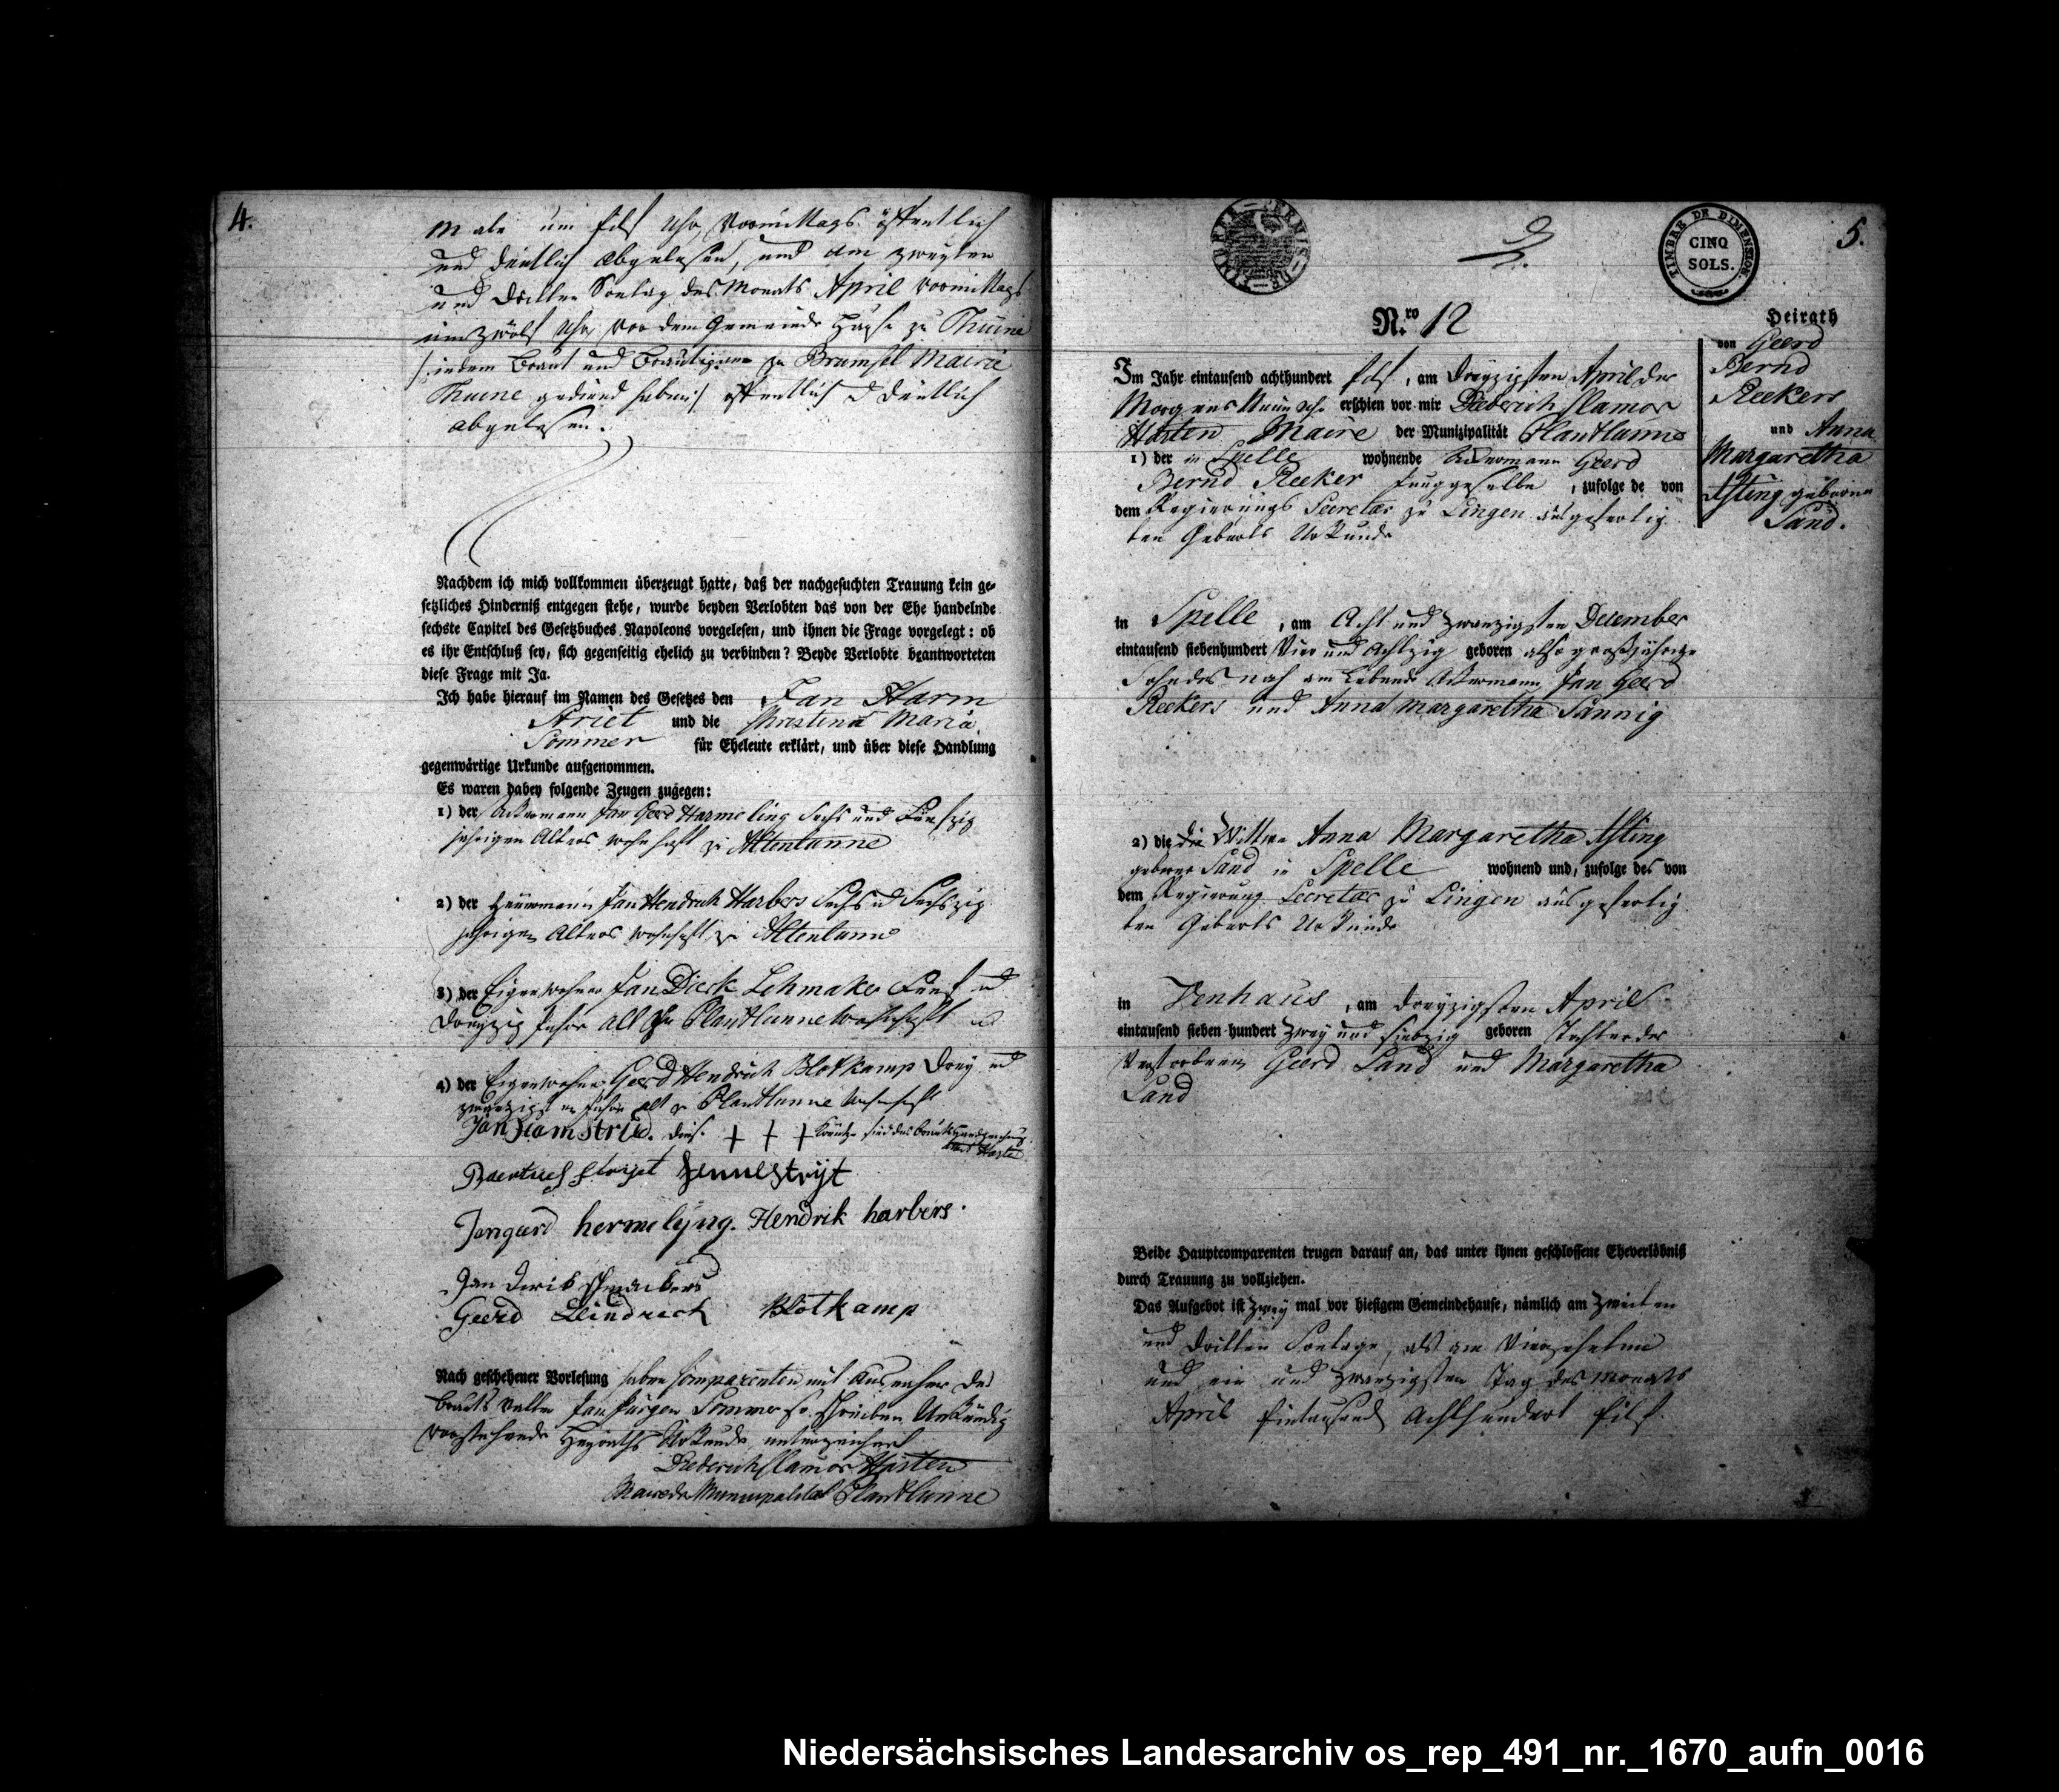 4.
Male um Eilf Uhr Vormittags öffentlich
und deutlich abgelesen, und am zweyten
und dritten Sontag des Monats April vormittags
um zwölf Uhr vor dem Gemeinde Hause zu Thuine
/: indem Braut und Bräutigam zu Bramsel Mairie
Thuine gedient haben :/ öffentlich u deutlich
abgelesen.
Nachdem ich mich vollkommen überzeugt hatte, daß der nachgesuchten Trauung kein ge-
setzliches Hinderniß entgegen stehe, wurde beyden Verlobten das von der Ehe handelnde
sechste Capitel des Gesetzbuches Napoleons vorgelesen, und ihnen die Frage vorgelegt: ob
es ihr Entschluß sey, sich gegenseitig ehelich zu verbinden? Beyde Verlobte beantworteten
diese Frage mit Ja.
Ich habe hierauf im Namen des Gesetzes den Jan Harm
Striet und die Christina Maria
Sommer für Eheleute erklärt, und über diese Handlung
gegenwärtige Urkunde aufgenommen.
Es waren dabey folgende Zeugen zugegen:
1) der Ackermann Jan Gerd Harmeling Sechs und Fünfzig
jährigen Alters wohnhaft zu Altenlünne
2) der Heuermann Jan Hendrich Harbers Sechs u Sechszig
jährigen Alters wohnhaft zu Altenlünne
3) der Eigenwohner Jan Dierk Schmaker Fünf und
dreyzig Jahre alt zu Plantlünne wohnhaft
4) der Eigenwohner Geerd Hendrich Blotkamp drey und
zwanzig Jahre alt zu Plantlünne wohnhaft
Jan Harm Stri diese + + + Kreutze sind des Brauts Handzeichnung
Striyt Stryt
Jangerd hermelyng. Hendrik harbers.
Jan Derik Schmackers
Geerd Heindreck Blotkamp
Nach geschehener Vorlesung haben Comparenten mit Ausnahm des
Brauts Vatter Jan Jürgen Sommer so schreiben Unkündig
vorstehende Heyraths Urkunde unterzeichnet
Diederich Clamor Harten
Maire der Municipalitat Plantlünne
5.
TIMBRE DE DIMENSION.
CINQ
SOLS.
N.ro 12
Heirath
von Geerd
Bernd
Reekers
und Anna
Margaretha
Asting geborne
Sand.
Im Jahr eintausend achthundert Eilf, am dreyzigsten April des
Morgens Neun Uhr erschien vor mir Diederich Clamor
Harten Maire der Munizipalität Plantlünne
1) der in Spelle wohnende Ackermann Geerd
Bernd Reeker Junggeselle, zufolge de von
dem Regierungs Secretär zu Lingen ausgefertig
ten Geburts Urkunde
in Spelle, am Acht und zwanzigsten December
eintausend siebenhundert Vier und Achtzig geboren also großjährige
Sohn des noch am Lebende Ackermann Jan Geerd
Reekers und Anna Margaretha Sännig
2) die die Wittwe Anna Margaretha Asting
geborne Sand in Spelle wohnend und, zufolge des von
dem Regierung Secretär zu Lingen ausgefertig
ten Geburts Urkunde
in Venhaus, am dreyzigsten April
eintausend sieben hundert Zwey und siebzig geboren Tochter der
Verstorbenen Geerd Sand und Margaretha
Sand
Beide Hauptcomparenten trugen darauf an, das unter ihnen geschlossene Eheverlöbniß
durch Trauung zu vollziehen.
Das Aufgebot ist Zwey mal vor hiesigem Gemeindehause, nämlich am Zweiten
und dritten Sontage, als am Vierzehnten
und ein und zwanzigsten Tag des Monats
April Eintausend Achthundert Eilf.
Niedersächsisches Landesarchiv os_rep_491_nr._1670_aufn_0016